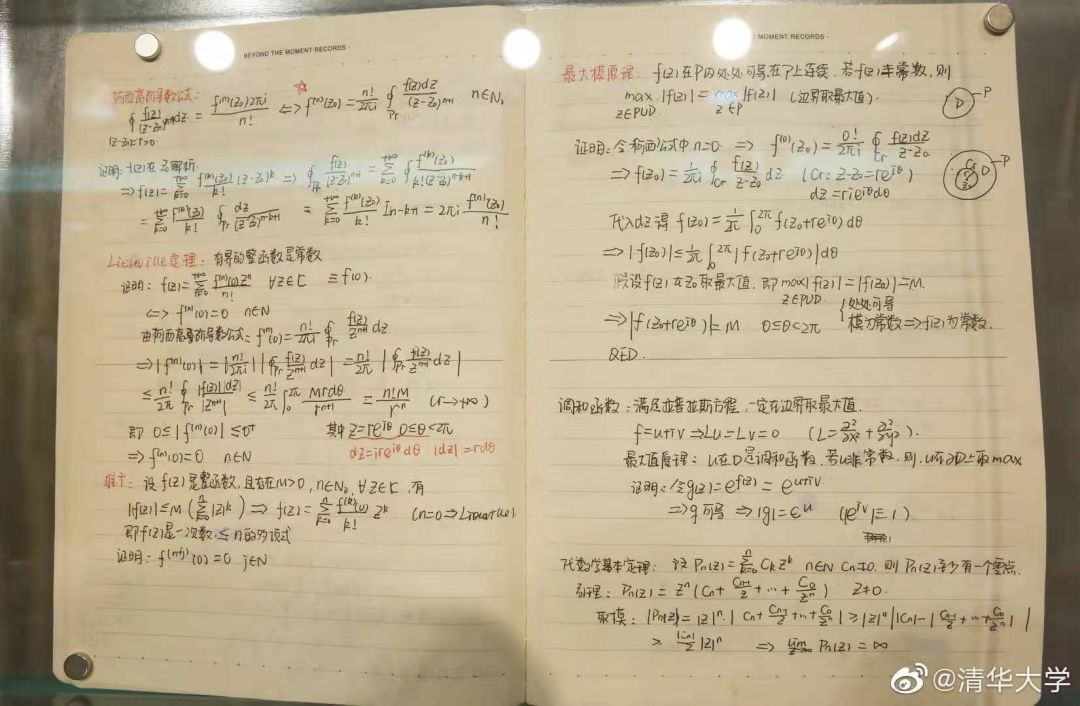 BEYOND THE MOMENT RECORDS
柯西高阶导数公式:
∮ f(z)/(z-z₀)ⁿ⁺¹ dz = f⁽ⁿ⁾(z₀)2πi / n! ⇔ f⁽ⁿ⁾(z₀) = n!/2πi ∮_Pr f(z)dz/(z-z₀)ⁿ⁺¹ n∈N₀
|z-z₀|=r>0
证明: f(z)在z₀解析
⇒ f(z) = Σ_{k=0}^{+∞} f⁽ᵏ⁾(z₀)/k! (z-z₀)ᵏ ⇒ ∮_Pr f(z)/(z-z₀)ⁿ⁺¹ = Σ_{k=0}^{+∞} ∮ f⁽ᵏ⁾(z₀)/k!(z-z₀)ⁿ⁻ᵏ⁺¹
= Σ_{k=0}^{+∞} f⁽ᵏ⁾(z₀)/k! ∮_Pr dz/(z-z₀)ⁿ⁻ᵏ⁺¹ = Σ_{k=0}^{+∞} f⁽ᵏ⁾(z₀)/k! I_{n-k+1} = 2πi f⁽ⁿ⁾(z₀)/n!
Liouville定理: 有界的整函数是常数
证明: f(z) = Σ_{n=0}^{+∞} f⁽ⁿ⁾(0)zⁿ/n! ∀z∈C ≡ f(0).
⇔ f⁽ⁿ⁾(0)=0 n∈N
由柯西高阶导数公式: f⁽ⁿ⁾(0) = n!/2πi ∮_Pr f(z)/zⁿ⁺¹ dz
⇒ |f⁽ⁿ⁾(0)| = |n!/2πi| |∮_Pr f(z)/zⁿ⁺¹ dz| = n!/2π |∮_Pr f(z)/zⁿ⁺¹ dz|
≤ n!/2π ∮_Pr |f(z)||dz|/|zⁿ⁺¹| ≤ n!/2π ∫₀^{2π} Mrdθ/rⁿ⁺¹ = n!M/rⁿ (r→+∞)
即 0≤|f⁽ⁿ⁾(0)|≤0⁺ 其中 z=re^{iθ} 0≤θ<2π
⇒ f⁽ⁿ⁾(0)=0 n∈N dz=ire^{iθ}dθ |dz|=rdθ
推广: 设f(z)是整函数, 且存在M>0, n∈N₀, ∀z∈C, 有
|f(z)|≤M(Σ_{k=0}^{n}|z|ᵏ) ⇒ f(z) = Σ_{k=0}^{n} f⁽ᵏ⁾(0)/k! zᵏ (n=0⇒Liouville)
即f(z)是一次数≤n的多项式
证明: f⁽ⁿ⁺ʲ⁾(0)=0 j∈N
MOMENT RECORDS
最大模原理: f(z)在P内处处可导,在P上连续. 若f(z)非常数, 则
max_{z∈P∪D} |f(z)| = max_{z∈P} |f(z)| (边界取最大值).
D P
证明: 令柯西公式中n=0 ⇒ f⁽⁰⁾(z₀) = 0!/2πi ∮_Cr f(z)dz/z-z₀
⇒ f(z₀) = 1/2πi ∮_Cr f(z)/z-z₀ dz (Cr: z-z₀=re^{iθ})
dz=rie^{iθ}dθ
Cr P r z₀ D
代入dz得 f(z₀) = 1/2π ∫₀^{2π} f(z₀+re^{iθ})dθ
⇒ |f(z₀)| ≤ 1/2π ∫₀^{2π} |f(z₀+re^{iθ})|dθ
假设f(z)在z₀取最大值, 即 max_{z∈P∪D}|f(z)| = |f(z₀)| = M.
⇒ |f(z₀+re^{iθ})| = M 0≤θ<2π { 处处可导 模为常数 ⇒ f(z)为常数.
QED.
调和函数: 满足拉普拉斯方程, 一定在边界取最大值.
f=u+iv ⇒ Lu=Lv=0 (L=∂²/∂x²+∂²/∂y²).
最大值原理: u在D是调和函数, 若u非常数, 则u在∂D上取max
证明: 令g(z)=e^{f(z)}=e^{u+iv}
⇒ g可导 ⇒ |g|=e^u (|e^{iv}|=1)
代数学基本定理: 设 Pn(z)=Σ_{k=0}^{n} C_k zᵏ n∈N Cn≠0. 则Pn(z)至少有一个零点.
引理: Pn(z) = zⁿ(Cn + Cn-1/z + … + C₀/zⁿ) z≠0.
取模: |Pn(z)| = |z|ⁿ·|Cn + Cn-1/z + … + C₀/zⁿ| ≥ |z|ⁿ ||Cn| - |Cn-1/z + … + C₀/zⁿ||
≥ |Cn|/2 |z|ⁿ ⇒ lim_{z→∞} Pn(z) = ∞
@清华大学